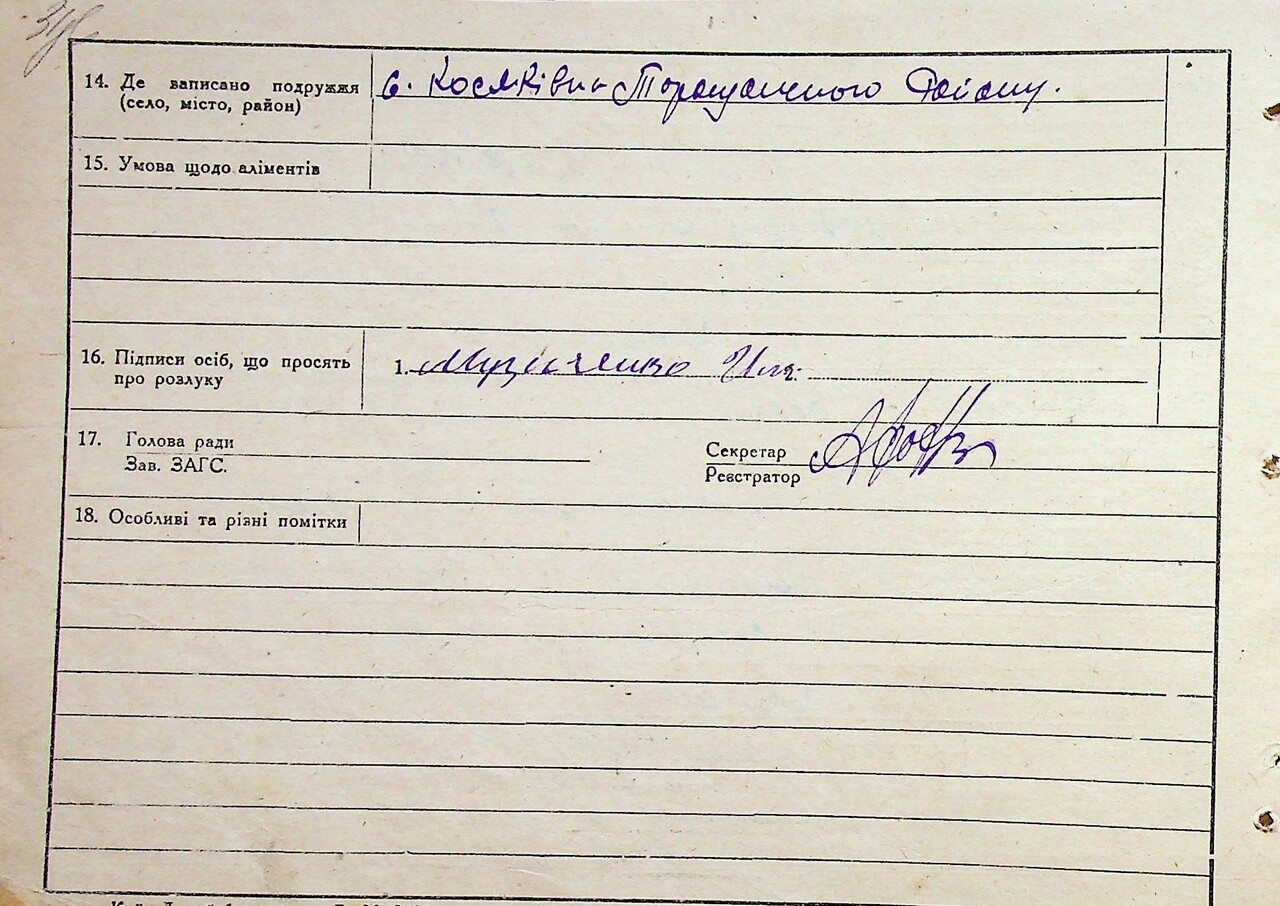 14. Де записано подружжя с. Косяківка Таращанського Району.
(село, місто, район)
15. Умова щодо аліментів
16. Підписи осіб, що просять 1. Музиченко
про розлуку
17. Голова ради Секретар
Зав. ЗАГС. Реєстратор
18. Особливі та різні помітки